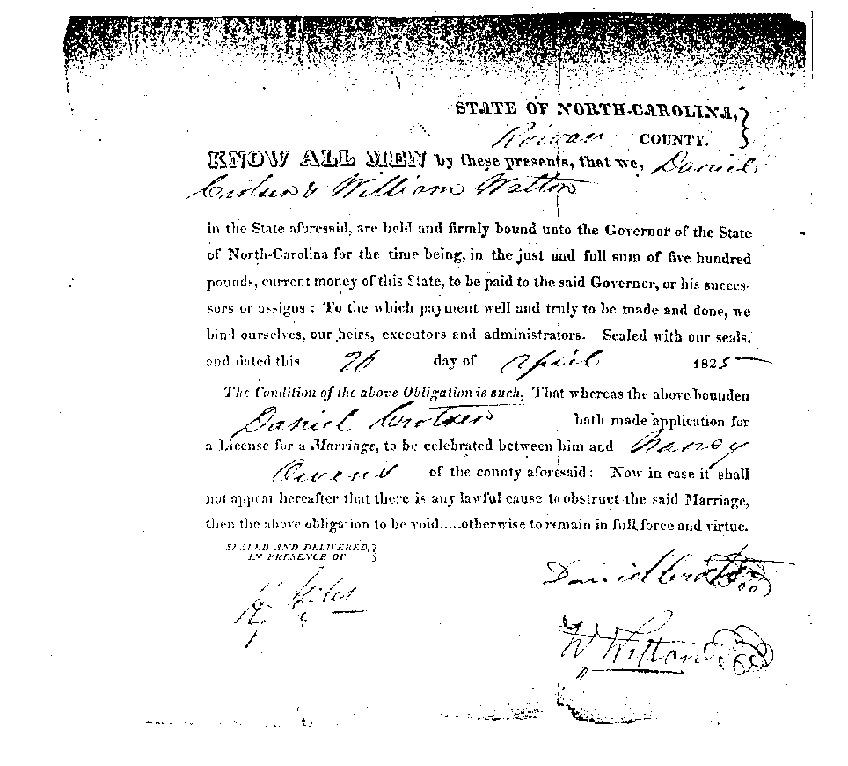 STATE OF NORTH-CAROLINA,
Rowan COUNTY.
KNOW ALL MEN by these presents, that we, Daniel
& William Watton
in the State aforesaid, are held and firmly bound unto the Governor of the State
of North-Carolina for the time being, in the just and full sum of five hundred
pounds, current money of this State, to be paid to the said Governor, or his succes-
sors or assigns: To the which payment well and truly to be made and done, we
bind ourselves, our heirs, executors and administrators. Sealed with our seals,
and dated this day of April 1825
The Condition of the above Obligation is such, That whereas the above bounden
Daniel Crotser hath made application for
a License for a Marriage, to be celebrated between him and Nancy
Owens of the county aforesaid: Now in case it shall
not appear hereafter that there is any lawful cause to obstruct the said Marriage,
then the above obligation to be void.....otherwise to remain in full force and virtue.
SEALED AND DELIVERED,
IN PRESENCE OF
Giles
Daniel
W